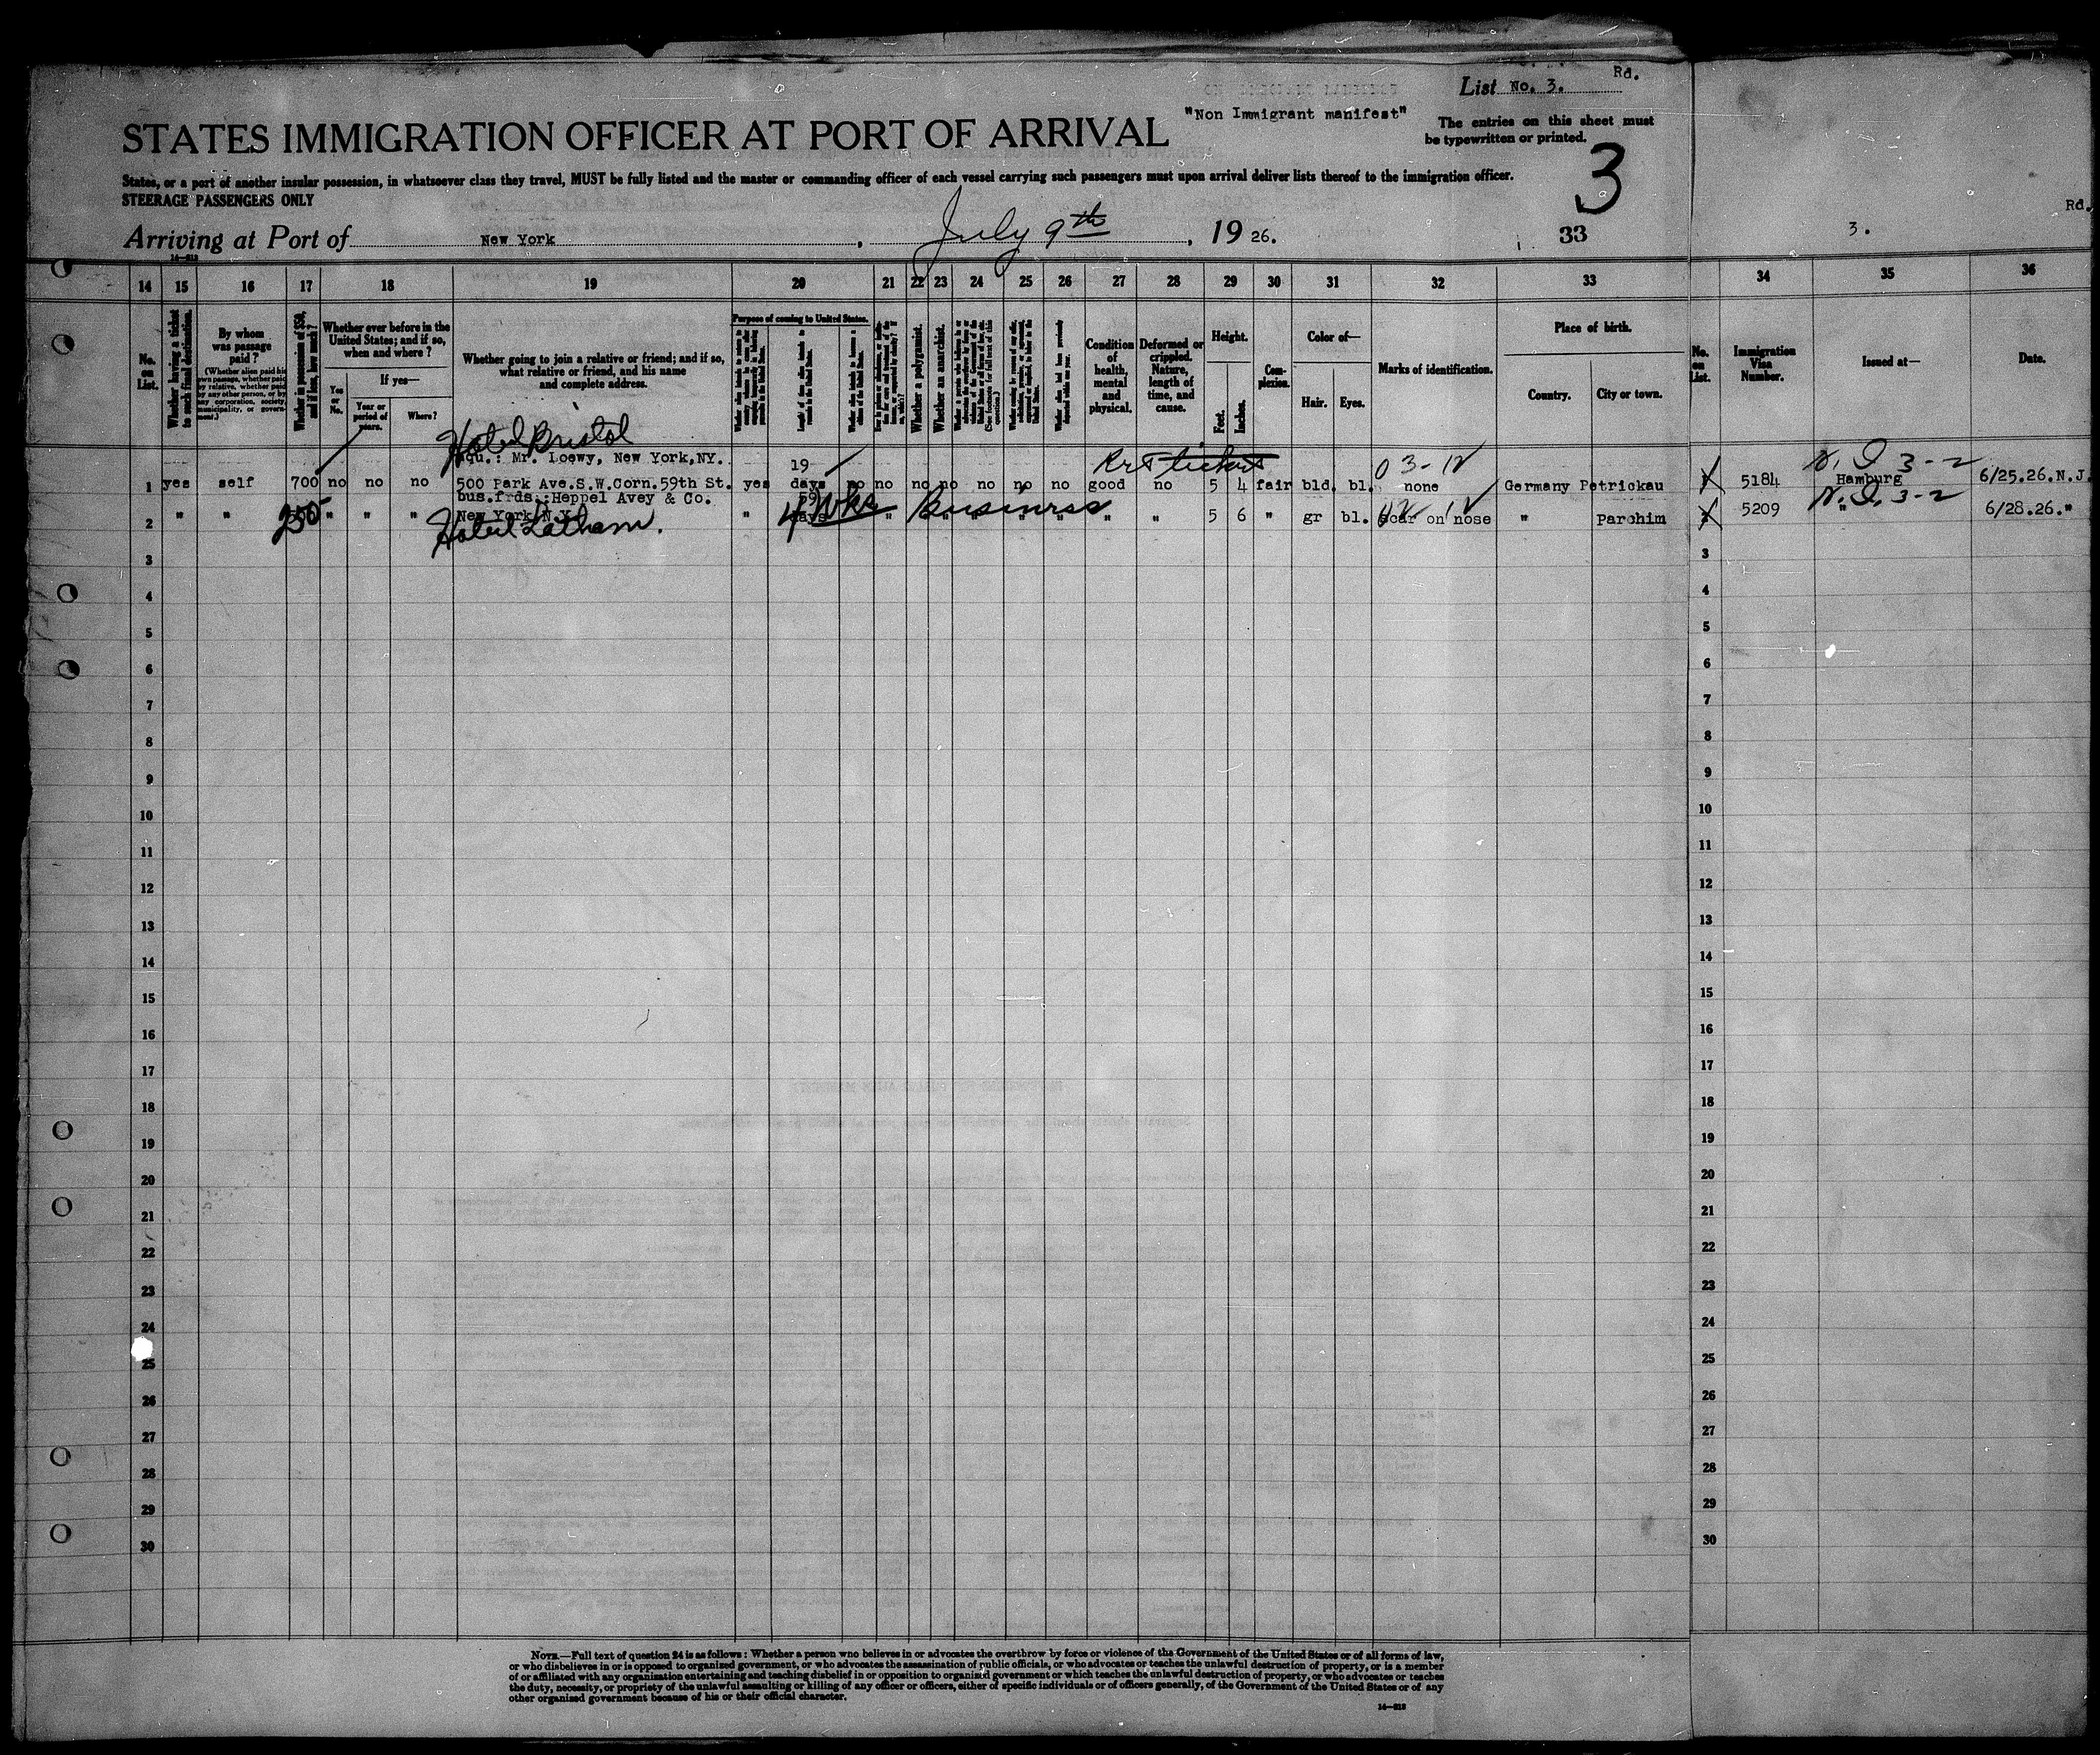 Rd.
List No. 3.
"Non Immigrant manifest"
STATES IMMIGRATION OFFICER AT PORT OF ARRIVAL
The entries on this sheet must
be typewritten or printed.
3
States, or a port of another insular possession, in whatsoever class they travel, MUST be fully listed and the master or commanding officer of each vessel carrying such passengers must upon arrival deliver lists thereof to the immigration officer.
STEERAGE PASSENGERS ONLY
Rd.
Arriving at Port of New York, July 9th, 1926.
33
3.
14 15 16 17 18 19 20 21 22 23 24 25 26 27 28 29 30 31 32 33 34 35 36
No. on List.
Whether having a ticket to such final destination.
By whom was passage paid?
(Whether alien paid his own passage, whether paid by relative, whether paid by any other person, or by any corporation, society, municipality, or government.)
Whether in possession of $50, and if less, how much?
Whether ever before in the United States; and if so, when and where?
Yes or No.
If yes—
Year or period of years.
Where?
Whether going to join a relative or friend; and if so, what relative or friend, and his name and complete address.
Purpose of coming to United States.
Whether a polygamist.
Whether an anarchist.
Condition of health, mental and physical.
Deformed or crippled. Nature, length of time, and cause.
Height.
Feet.
Inches.
Complexion.
Color of—
Hair.
Eyes.
Marks of identification.
Place of birth.
Country.
City or town.
No. on List.
Immigration Visa Number.
Issued at—
Date.
Hotel Bristol
Mr. Loewy, New York, NY.
19
03-12
N. I 3-2
1 yes self 700 no no no 500 Park Ave.S.W.Corn.59th St. yes days no no no no no no no good no 5 4 fair bld. bl. none Germany Petrickau 5184 Hamburg 6/25.26.N.J.
bus.frds.:Heppel Avey & Co.
59
N. I. 3-2
2 " " 250 " " " New York, N.Y. " days 4 Wks " Business " " " " " " 5 6 " gr bl. scar on nose " Parchim 5209 " 6/28.26."
Hotel Latham.
3 3
4 4
5 5
6 6
7 7
8 8
9 9
10 10
11 11
12 12
13 13
14 14
15 15
16 16
17 17
18 18
19 19
20 20
21 21
22 22
23 23
24 24
25 25
26 26
27 27
28 28
29 29
30 30
NOTE.—Full text of question 24 is as follows: Whether a person who believes in or advocates the overthrow by force or violence of the Government of the United States or of all forms of law,
or who disbelieves in or is opposed to organized government, or who advocates the assassination of public officials, or who advocates or teaches the unlawful destruction of property, or is a member
of or affiliated with any organization entertaining and teaching disbelief in or opposition to organized government or which teaches the unlawful destruction of property, or who advocates or teaches
the duty, necessity, or propriety of the unlawful assaulting or killing of any officer or officers, either of specific individuals or of officers generally, of the Government of the United States or of any
other organized government because of his or their official character.
14—813